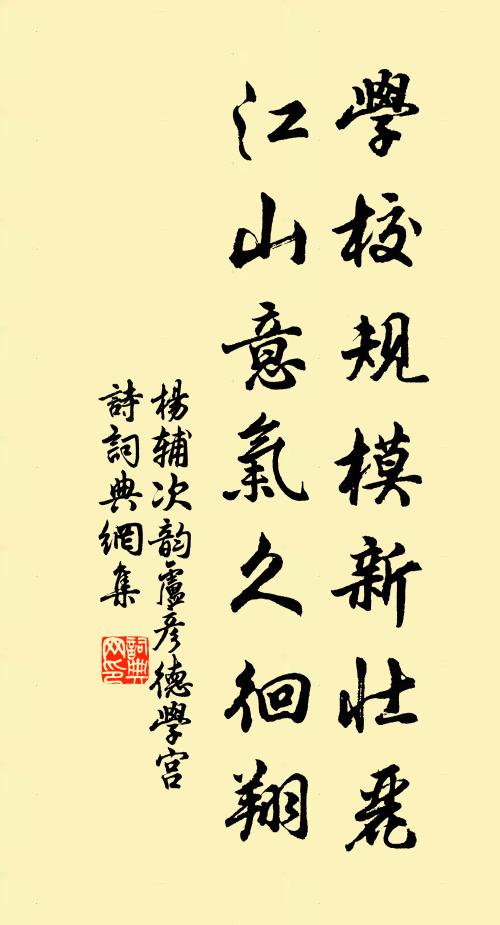 學校規模新壯麗
江山意氣久徊翔
楊輔次韵盧彦德學宫
詩詞典網集
詞典
网印